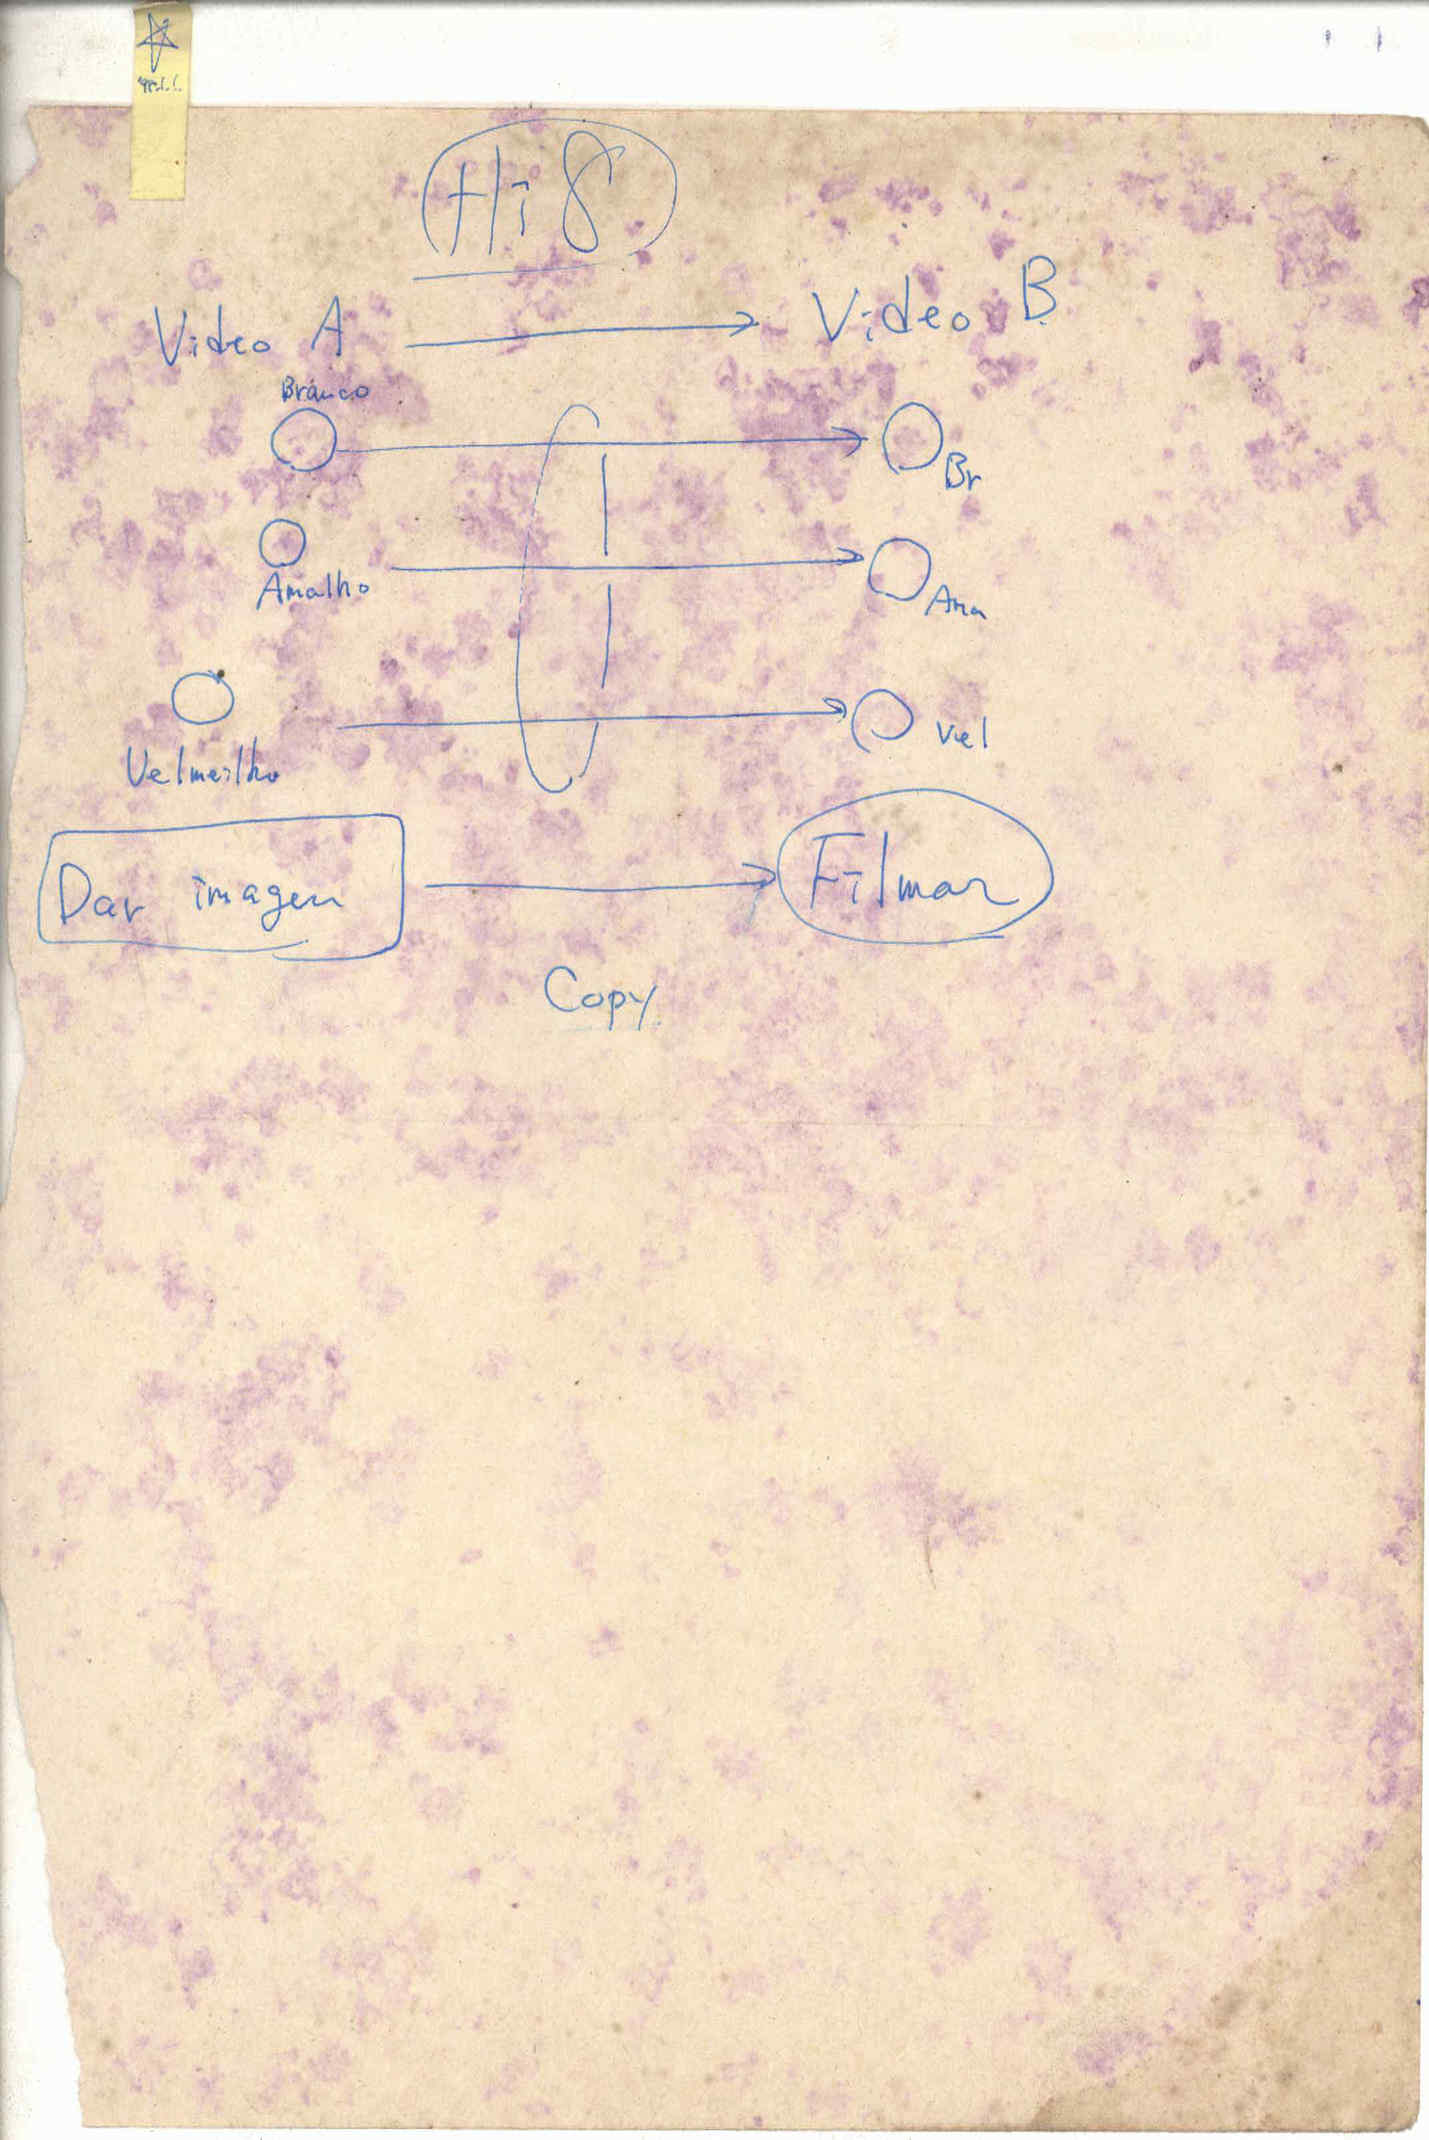 Hi8
Video A Video B
Branco
Br
Amalho
Ama
Vel
Velmeilho
Dar imagen Filmar
Copy